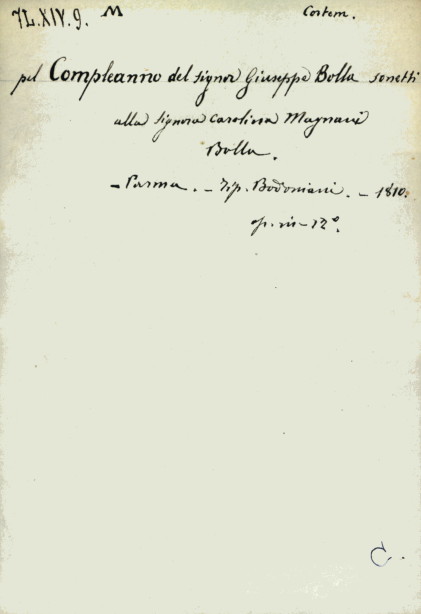 7L.XIV.9. M Costem.
pel Compleanno del signor Giuseppe Bolla sonetti
alla signora Carolina Magnani
Bolla.
- Parma. - Tip. Bodoniani. - 1810.
op. in - 12°.
C.